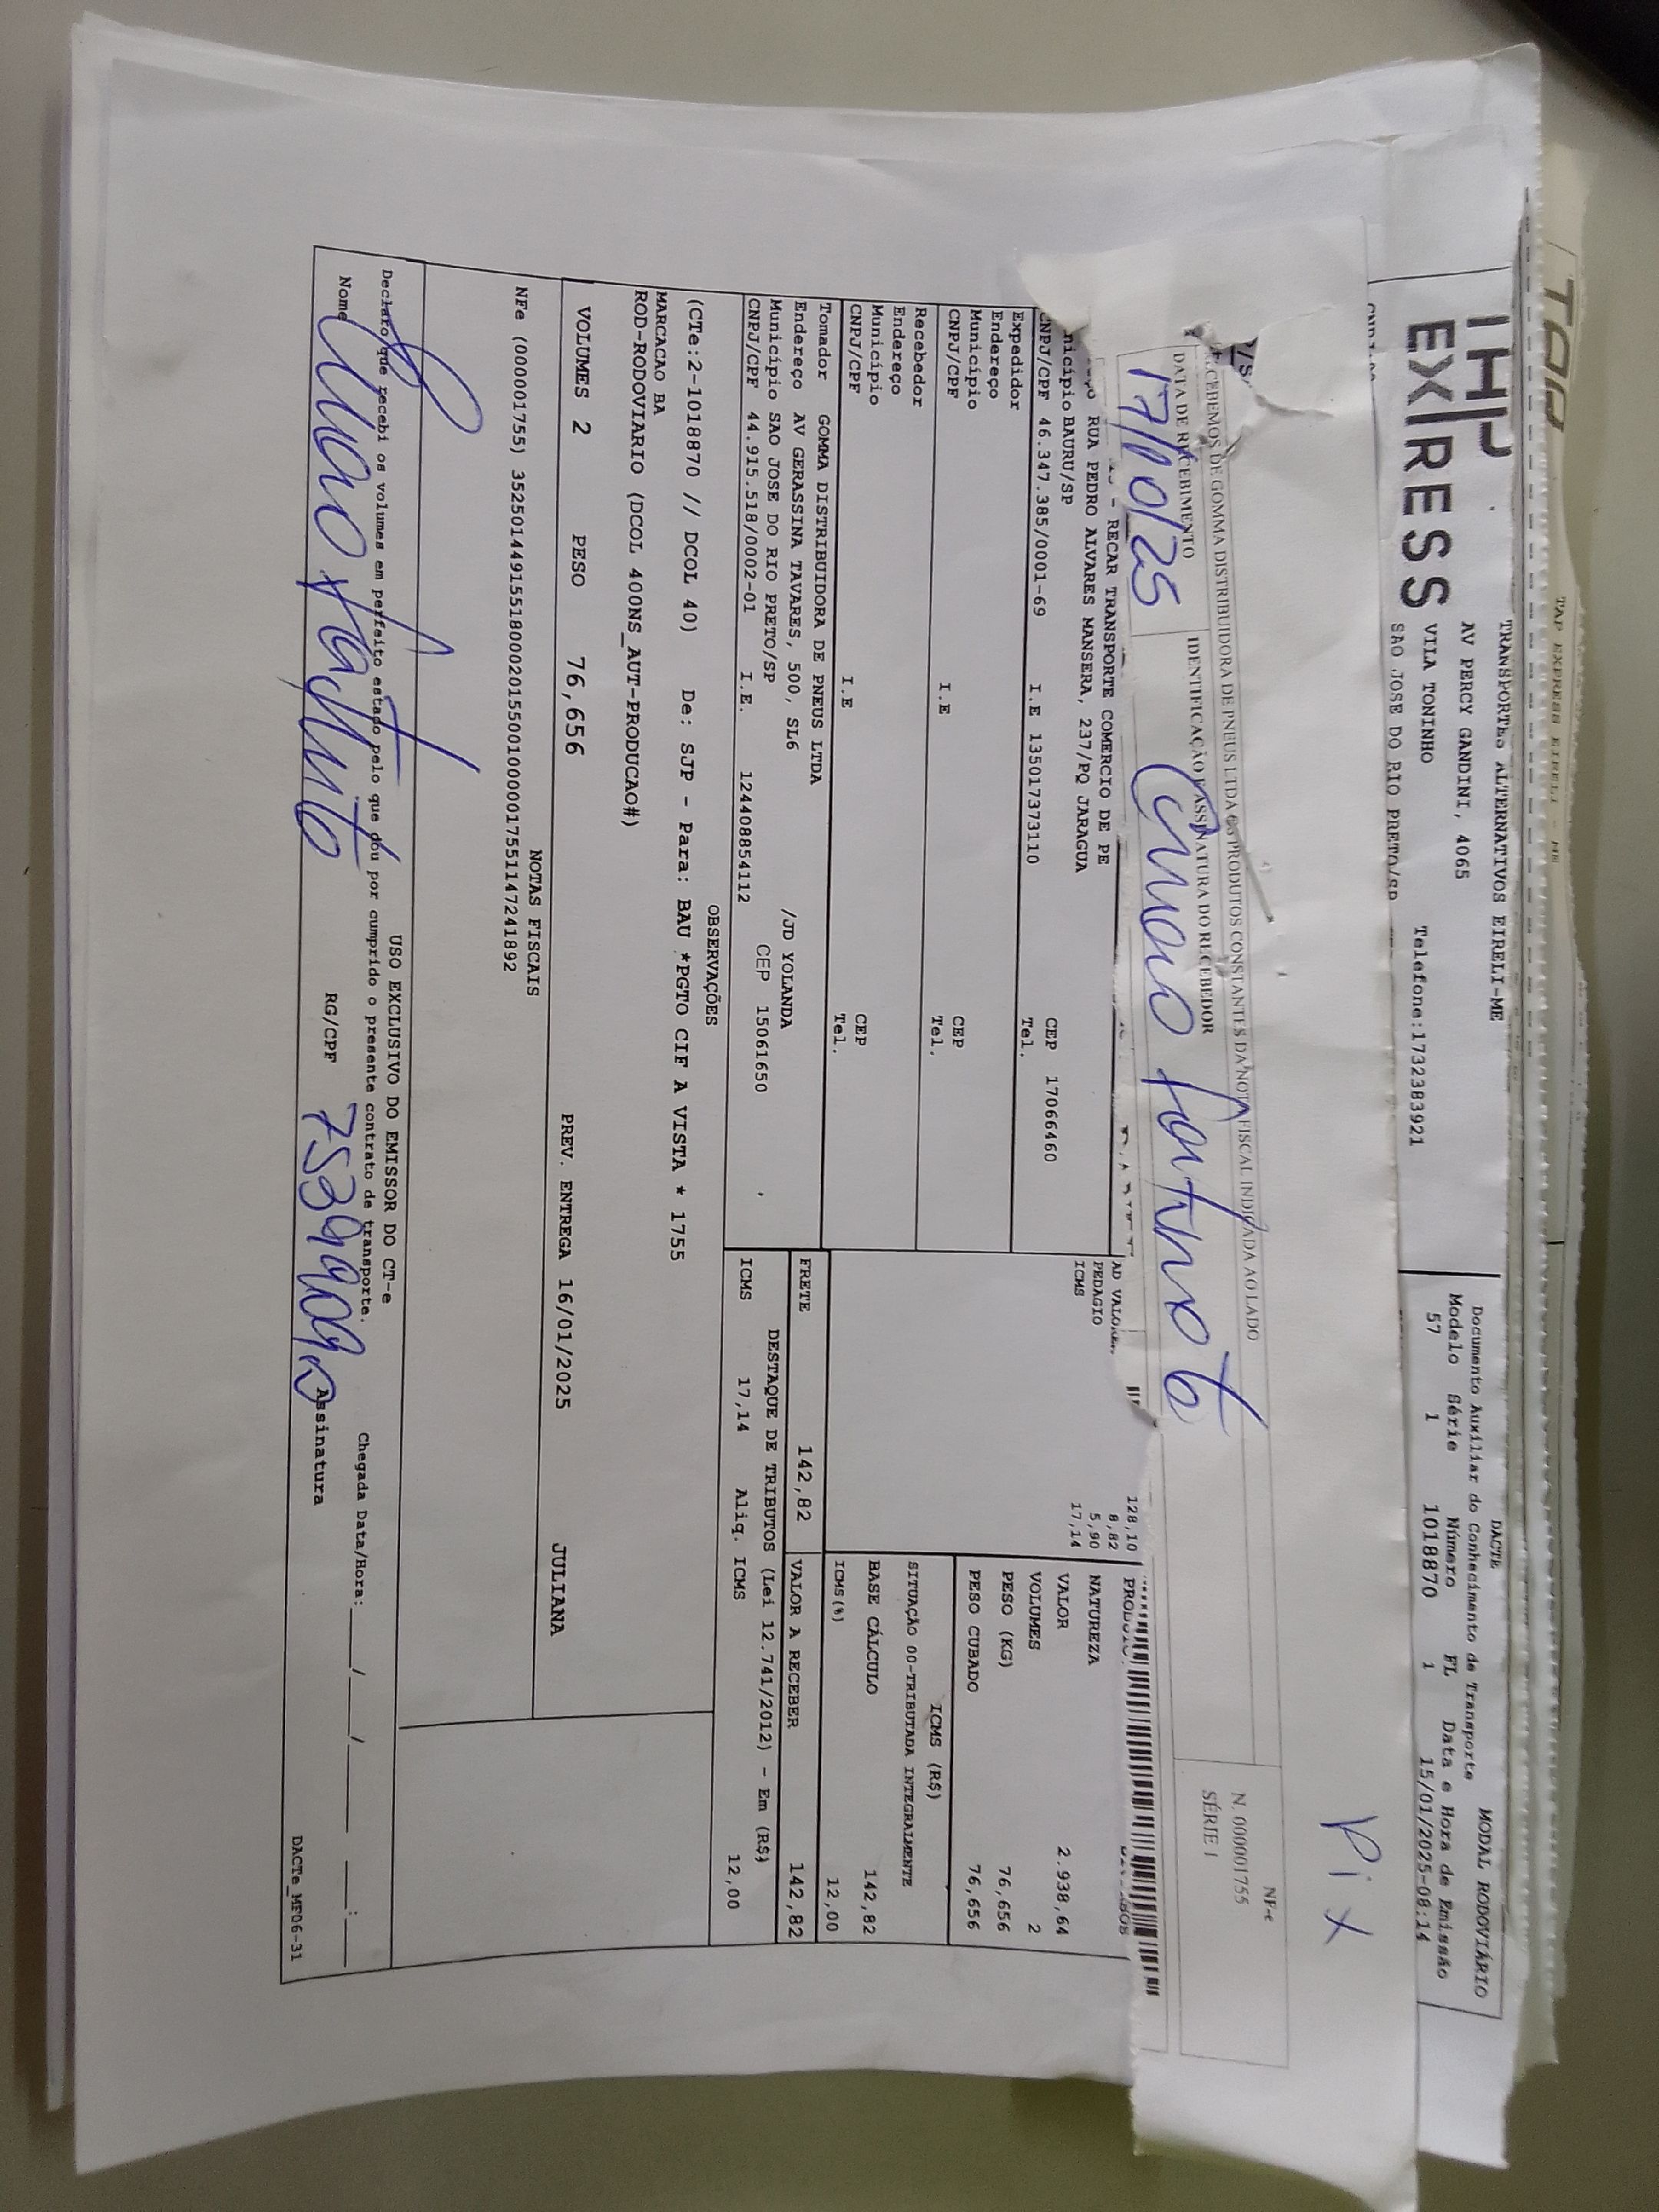 TAP
TAP EXPRESS EIRELI - ME
EXPRESS
TRANSPORTES ALTERNATIVOS EIRELI-ME
AV PERCY GANDINI, 4065
VILA TONINHO
Telefone:1732383921
SAO JOSE DO RIO PRETO/SP
DACTE
Documento Auxiliar do Conhecimento de Transporte
MODAL RODOVIÁRIO
Modelo Série Número FL Data e Hora de Emissão
57 1 1018870 1 15/01/2025-08:14
Pix
RECEBEMOS DE GOMMA DISTRIBUIDORA DE PNEUS LTDA OS PRODUTOS CONSTANTES DA NOTA FISCAL INDICADA AO LADO
DATA DE RECEBIMENTO
IDENTIFICAÇÃO E ASSINATURA DO RECEBEDOR
17/01/25
NF-e
N. 000001755
SÉRIE 1
- RECAR TRANSPORTE COMERCIO DE PE
RUA PEDRO ALVARES MANSERA, 237/PQ JARAGUA
BAURU/SP
CEP 17066460
CNPJ/CPF 46.347.385/0001-69 I.E 135017373110 Tel.
Expedidor
Endereço
Município CEP
CNPJ/CPF I.E Tel.
Recebedor
Endereço
Município CEP
CNPJ/CPF I.E Tel.
Tomador GOMMA DISTRIBUIDORA DE PNEUS LTDA
Endereço AV GERASSINA TAVARES, 500, SL6 /JD YOLANDA
Município SAO JOSE DO RIO PRETO/SP CEP 15061650
CNPJ/CPF 44.915.518/0002-01 I.E. 124408854112
128,10
AD VALOREM 8,82
PEDAGIO 5,90
ICMS 17,14
NATUREZA
VALOR 2.938,64
VOLUMES 2
PESO (KG) 76,656
PESO CUBADO 76,656
ICMS (R$)
SITUAÇÃO 00-TRIBUTADA INTEGRALMENTE
BASE CÁLCULO 142,82
ICMS(%) 12,00
FRETE 142,82 VALOR A RECEBER 142,82
DESTAQUE DE TRIBUTOS (Lei 12.741/2012) - Em (R$)
ICMS 17,14 Aliq. ICMS 12,00
OBSERVAÇÕES
(CTe:2-1018870 // DCOL 40) De: SJP - Para: BAU *PGTO CIF A VISTA * 1755
MARCACAO BA
ROD-RODOVIARIO (DCOL 400NS_AUT-PRODUCAO#)
VOLUMES 2 PESO 76,656 PREV. ENTREGA 16/01/2025 JULIANA
NOTAS FISCAIS
NFe (000001755) 35250144915518000201550010000017551147241892
USO EXCLUSIVO DO EMISSOR DO CT-e
Declaro que recebi os volumes em perfeito estado pelo que dou por cumprido o presente contrato de transporte.
Chegada Data/Hora:___/___/_____ ___:___
Nome RG/CPF Assinatura
DACTe_MF06-31